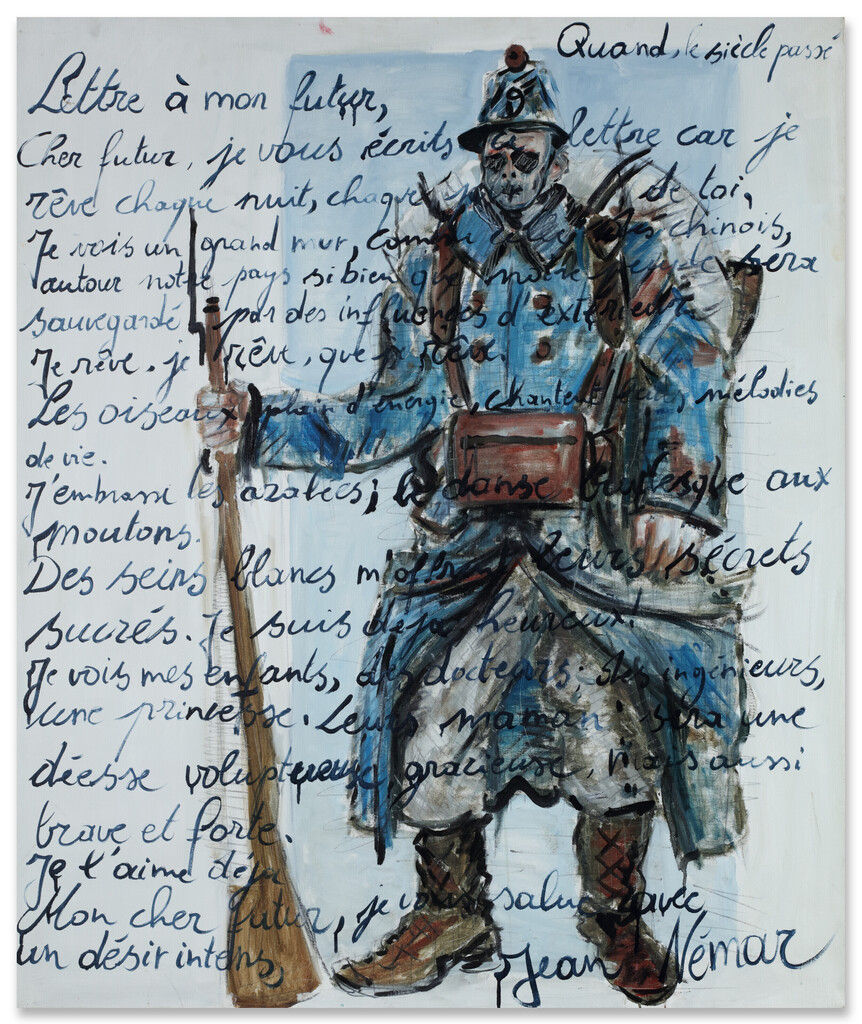 Quand, le siècle passé
Lettre à mon futur,
Cher futur, je vous écrits ce lettre car je
rêve chaque nuit, chaque de toi,
Je vois un grand mur, comme celui des chinois,
autour notre pays si bien que notre temple sera
sauvegardé par des influences d'extérieur.
Je rêve. je rêve, que je rêve.
Les oiseaux plain d'énergie, chantent leurs mélodies
de vie.
J'embrasse les arabées; le danse burlesque aux
moutons.
Des seins blancs m'offrent leurs sécrets
sucrés. Je suis déja heureux!
Je vois mes enfants, des docteurs, des ingénieurs,
une princèsse. Leurs maman sera une
déesse voluptueuse, gracieuse, mais aussi
brave et forte.
Je t'aime déja
Mon cher futur, je vous salue avec
un désir intens,
Jean Némar
9